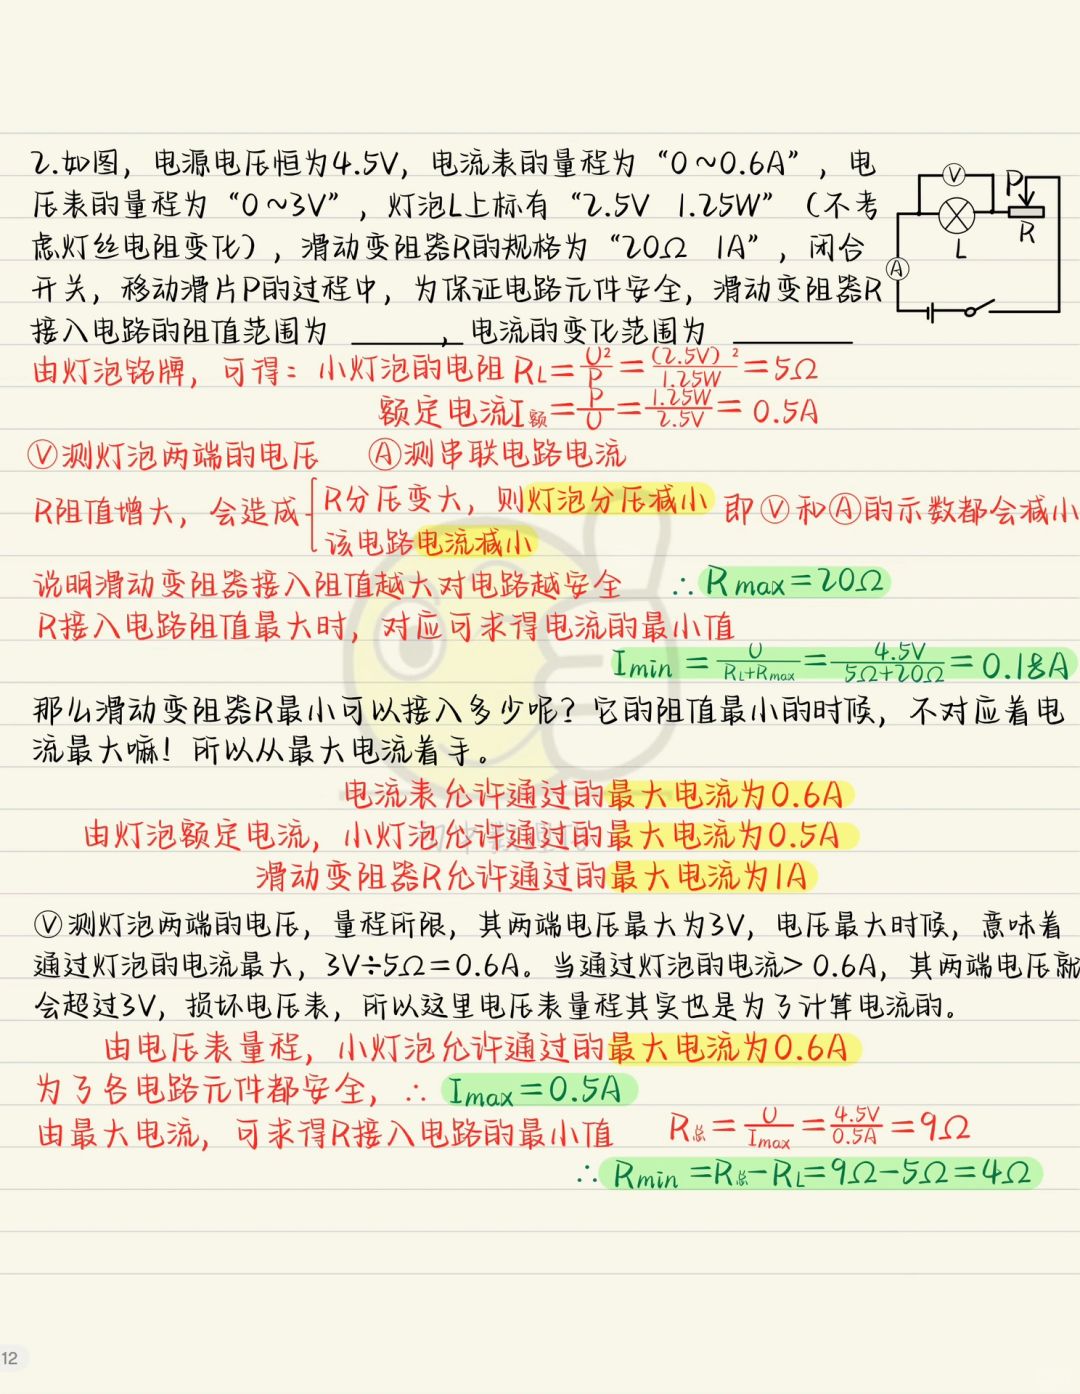 2.如图，电源电压恒为4.5V，电流表的量程为“0~0.6A”，电
压表的量程为“0~3V”，灯泡L上标有“2.5V 1.25W”（不考
虑灯丝电阻变化），滑动变阻器R的规格为“20Ω 1A”，闭合
开关，移动滑片P的过程中，为保证电路元件安全，滑动变阻器R
接入电路的阻值范围为 ______，电流的变化范围为 ______
V
P
L
R
A
由灯泡铭牌，可得：小灯泡的电阻RL=U²/P=(2.5V)²/1.25W=5Ω
额定电流I额=P/U=1.25W/2.5V=0.5A
Ⓥ测灯泡两端的电压 Ⓐ测串联电路电流
R阻值增大，会造成{R分压变大，则灯泡分压减小 即Ⓥ和Ⓐ的示数都会减小
该电路电流减小
说明滑动变阻器接入阻值越大对电路越安全 ∴Rmax=20Ω
R接入电路阻值最大时，对应可求得电流的最小值
Imin=U/(RL+Rmax)=4.5V/(5Ω+20Ω)=0.18A
那么滑动变阻器R最小可以接入多少呢？它的阻值最小的时候，不对应着电
流最大嘛！所以从最大电流着手。
电流表允许通过的最大电流为0.6A
由灯泡额定电流，小灯泡允许通过的最大电流为0.5A
滑动变阻器R允许通过的最大电流为1A
Ⓥ测灯泡两端的电压，量程所限，其两端电压最大为3V，电压最大时候，意味着
通过灯泡的电流最大，3V÷5Ω=0.6A。当通过灯泡的电流>0.6A，其两端电压就
会超过3V，损坏电压表，所以这里电压表量程其实也是为了计算电流的。
由电压表量程，小灯泡允许通过的最大电流为0.6A
为了各电路元件都安全，∴Imax=0.5A
由最大电流，可求得R接入电路的最小值 R总=U/Imax=4.5V/0.5A=9Ω
∴Rmin=R总-RL=9Ω-5Ω=4Ω
12